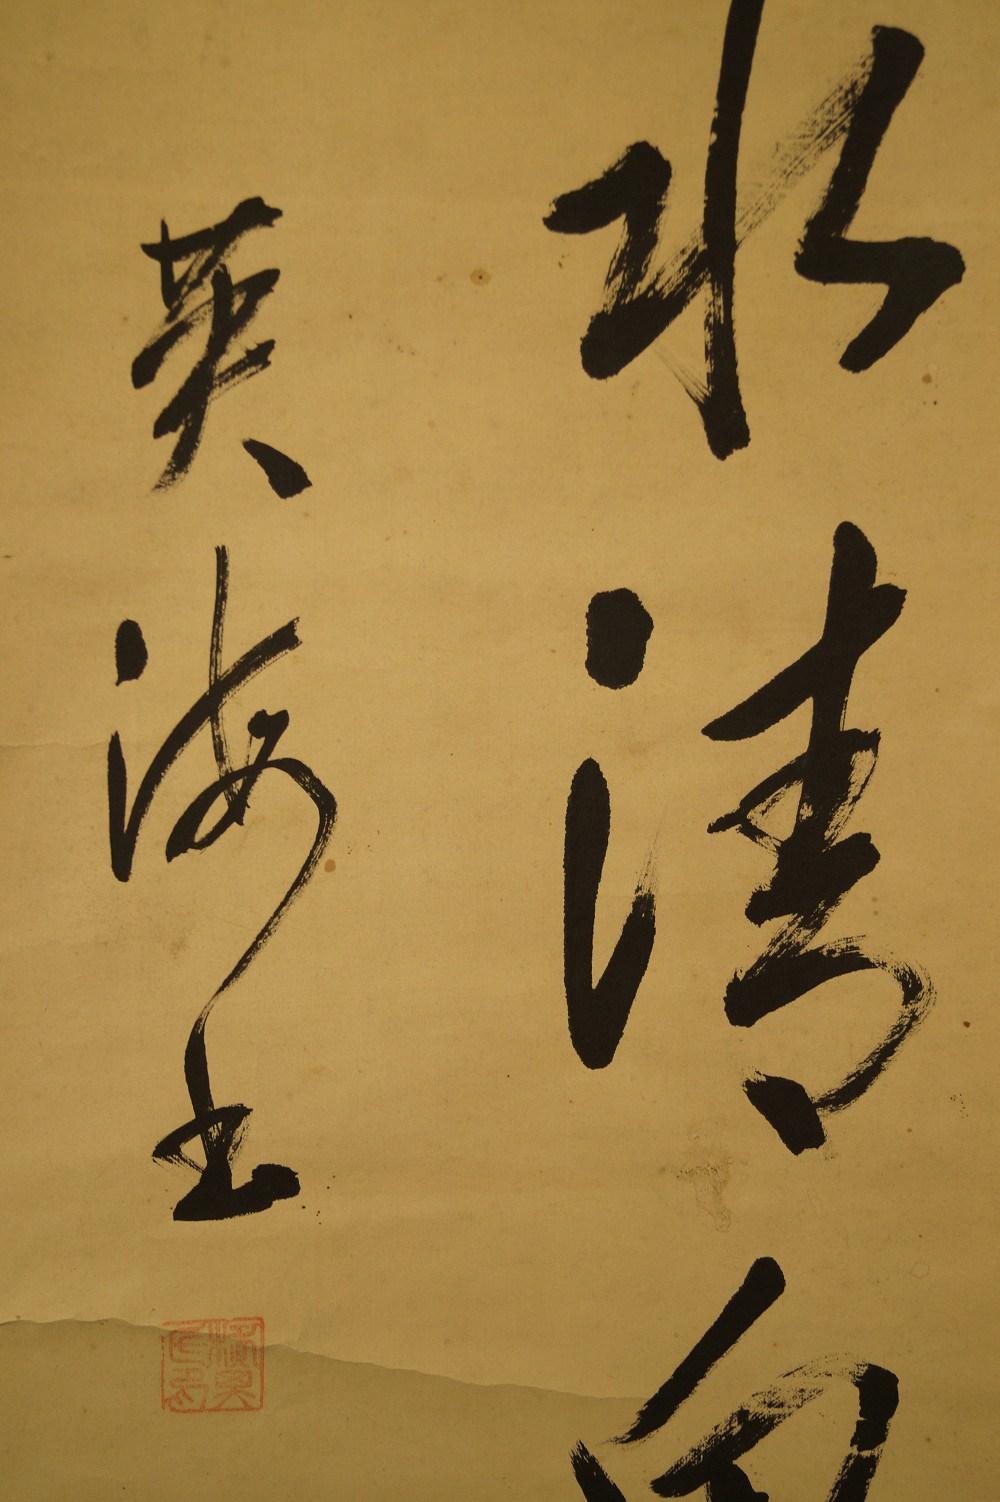 水清
英海書